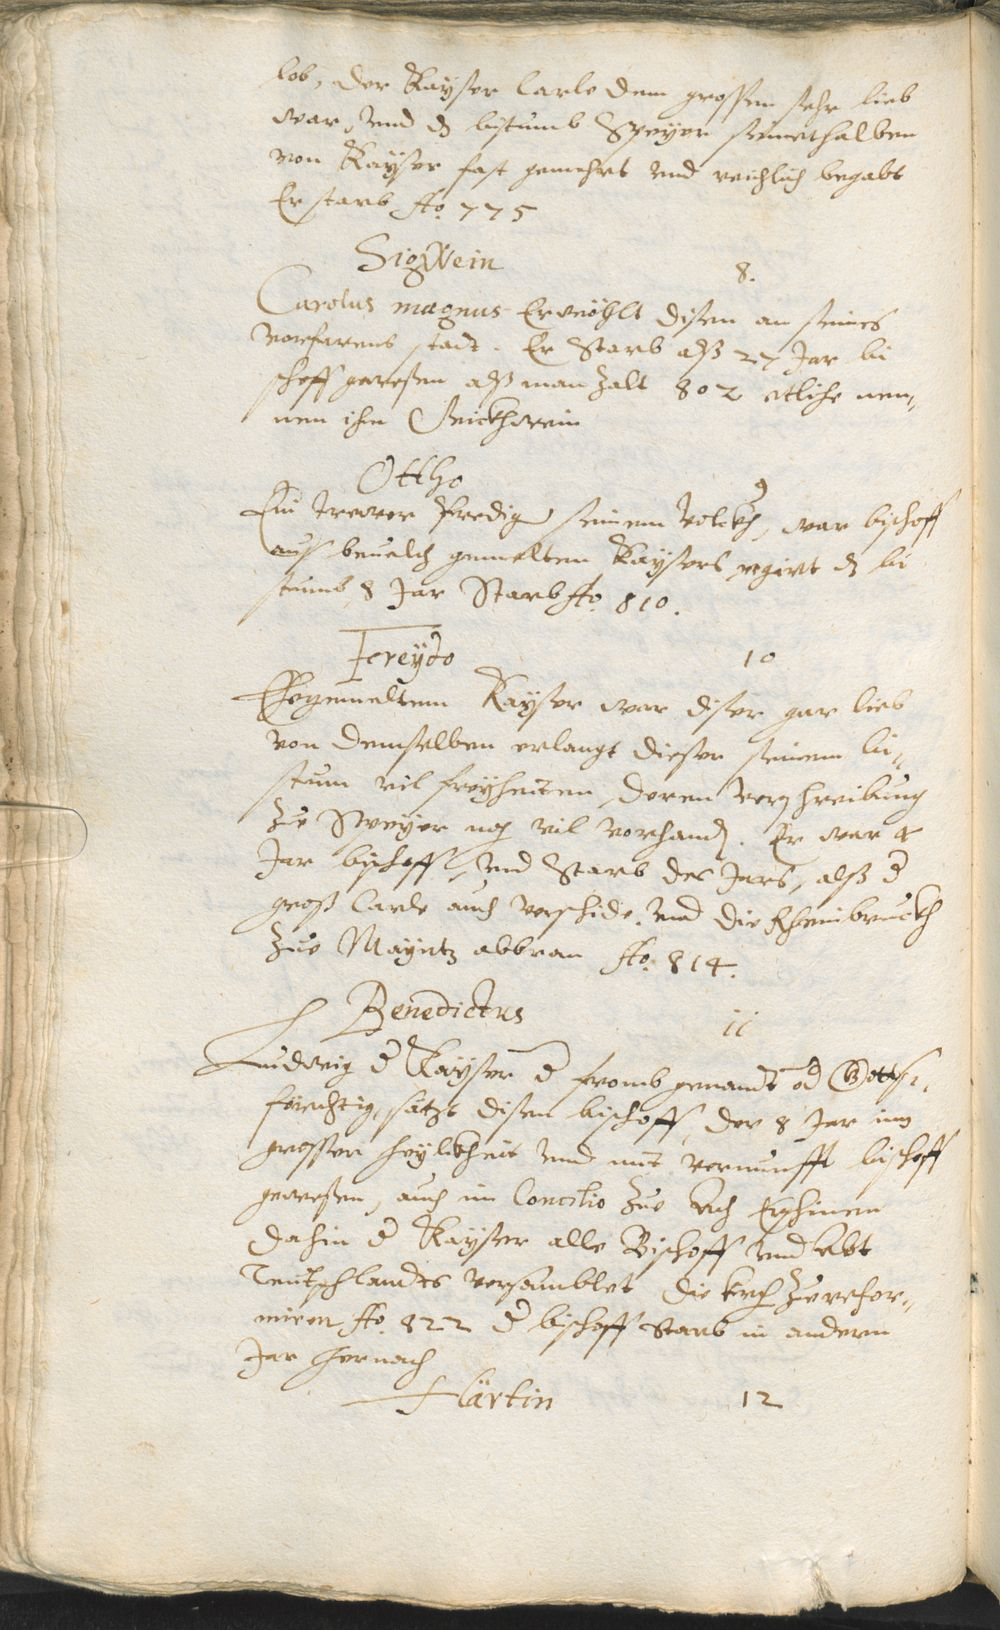 lob, der Kayser Carle dem grossen sehr lieb
war, vnd ds bistumb Speyer seinethalben
von Kayser fast gemehrt vnd reichlich begabt
Er starb Ao. 775
Sigwein 8.
Carolus magnus Erwöhlt disen an seines
vorfarens statt. Er Starb alß 27 Jar bi
schoff gewesen alß man zalt 802 etliche nen,
nen ihn
Ottho 9
Ein trewer Prediger seinem volckh, war bischoff
auß beuelch gemelten Kaysers regirt ds bi
stumb 8 Jar Starb Ao. 810.
Freydo 10
Ehegemeltem Kayser war diser gar lieb
von demselben erlangt dieser seinem bi,
stum vil freyheiten, deren verschreibung
zue Speyer noch vil vorhanden. Er war 4
Jar bischoff, vnd Starb des Jars, alß der
groß Carle auch verschide. vnd die Rheinbruckh
zue Mayntz abbran Ao. 814.
Benedictus 11
Ludwig der Kayser der fromb genandt od Gotts,
förchtig, sätzt disen bischoff, der 8 Jar inn
grosser heylikheit vnd mit vernunfft bischoff
gewesen, auch im Concilio zue Ach Erschinen
dahin der Kayser alle Bischoff vnd Abt
Teutschlandts versamblet die kirch zue refor,
miren Ao. 822 der bischoff Starb in andern
Jar hernach
Härtin 12